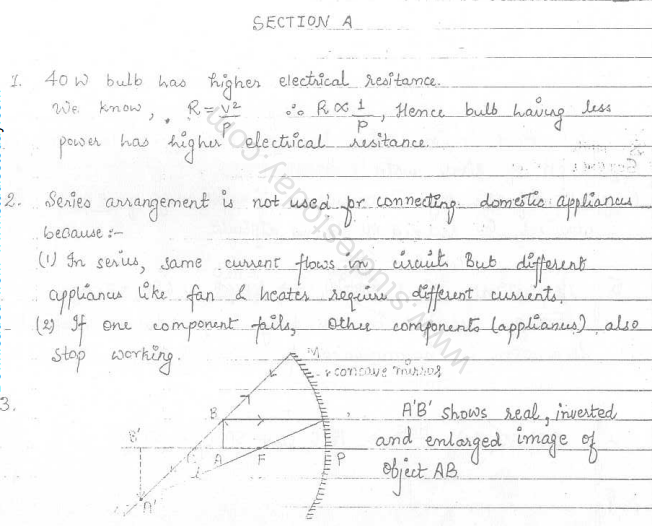 SECTION A
1. 40 W bulb has higher electrical resitance.
We know, R = V²/P ∴ R ∝ 1/P, Hence bulb having less
power has higher electrical resitance.
2. Series arrangement is not used for connecting domestic appliances
because :-
(1) In series, same current flows in circuit. But different
appliances like fan & heater require different currents.
(2) If one component fails, other components (appliances) also
stop working.
3.
M
concave mirror
B
B'
C
A
F
P
A'
A'B' shows real, inverted
and enlarged image of
object AB
www.studiestoday.com